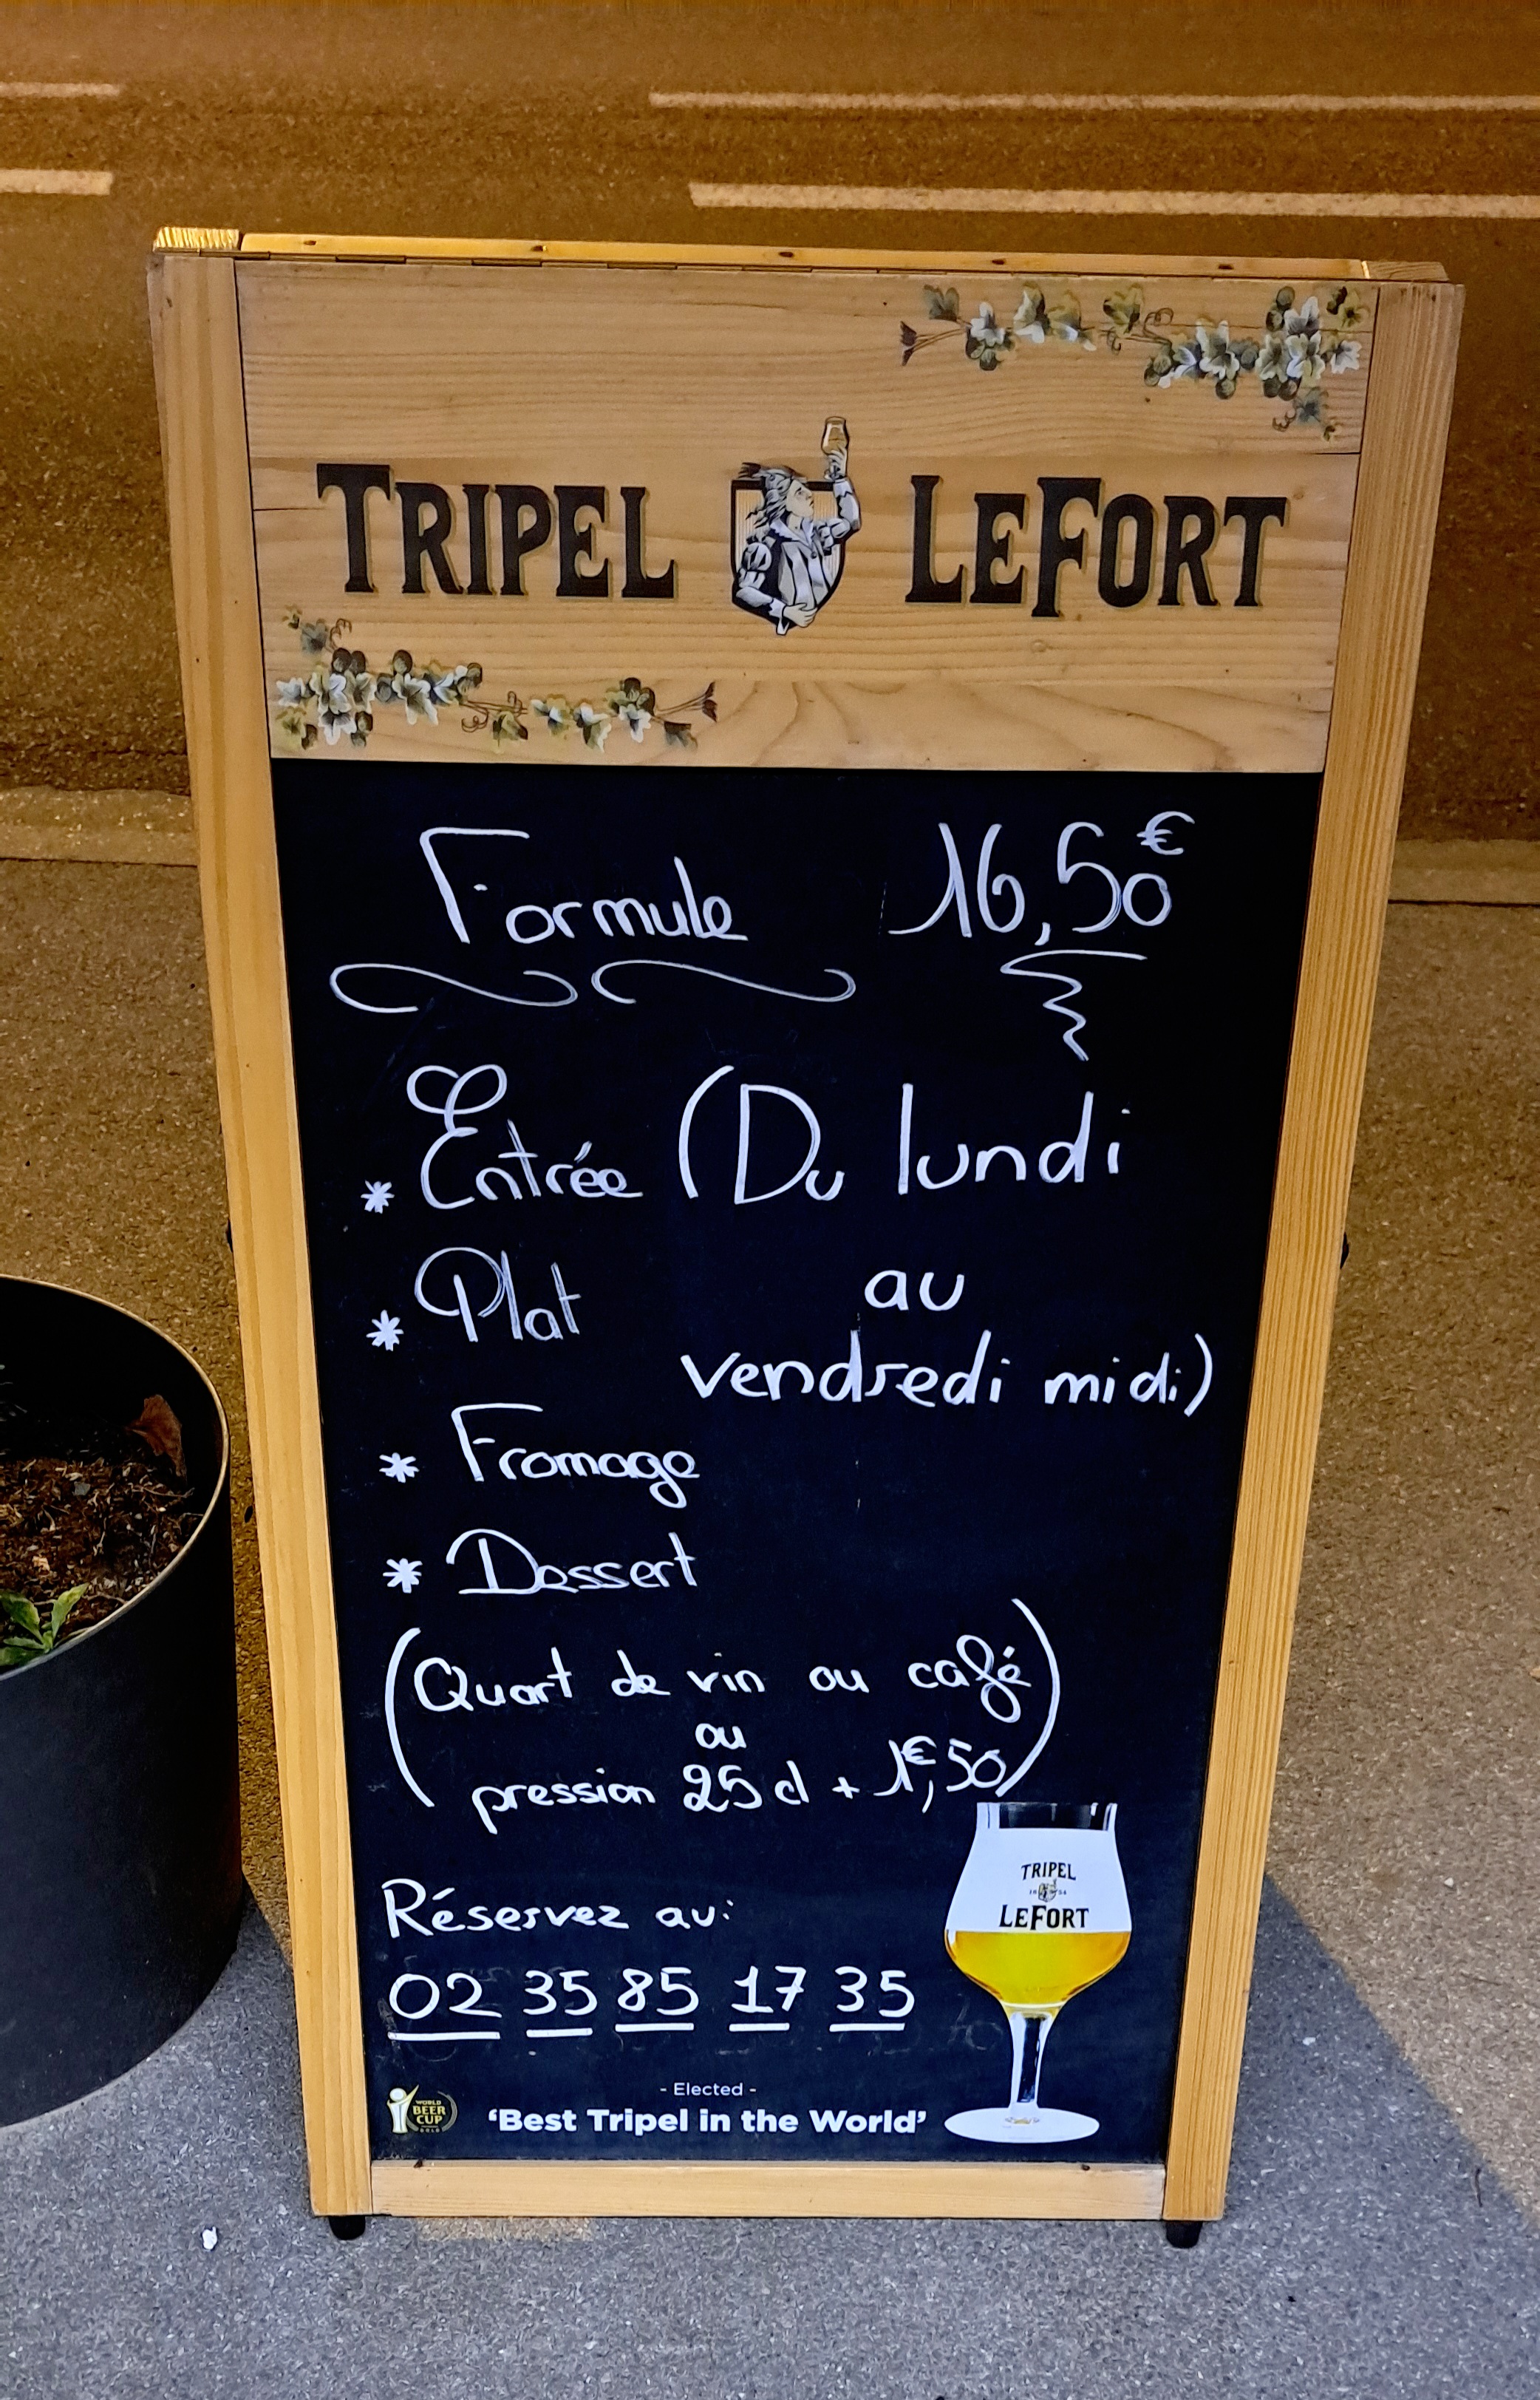 TRIPEL LEFORT
Formule 16,50€
* Entrée (Du lundi
* Plat au
vendredi midi)
* Fromage
* Dessert
(Quart de vin ou café
ou
pression 25 cl + 1€,50)
Réservez au:
02 35 85 17 35
TRIPEL
LEFORT
- Elected -
‘Best Tripel in the World’
WORLD
BEER
CUP